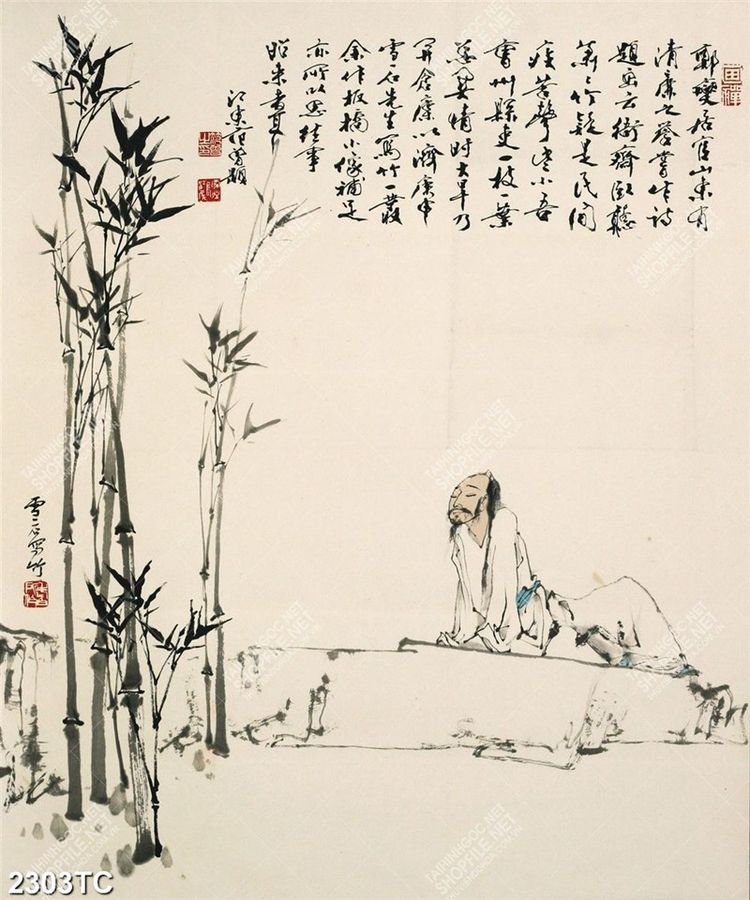 鄭燮居官山東有
清廉之譽嘗作詩
題畫云衙齋臥聽
蕭〻竹疑是民間
疾苦聲些小吾
曹州縣吏一枝一葉
總關情時大旱乃
開倉廩以濟
雪石先生寫竹一叢
余作板橋小像補足
亦所以思往事
昭來者
江東范曾題
雪石寫竹
SHOPFILE.NET
2303TC